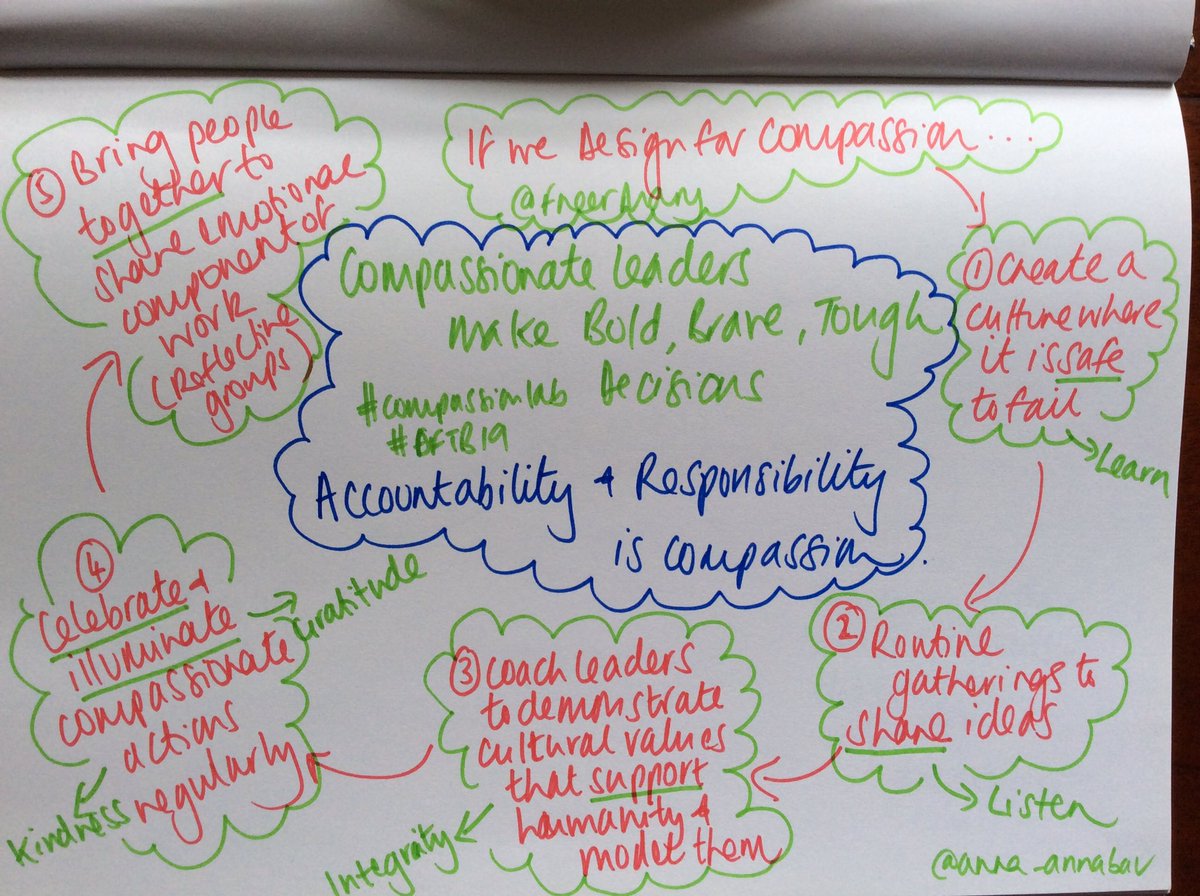 If we Design for Compassion...
Compassionate leaders
make Bold, Brave, Tough
Decisions
#compassionlab
#DFTB19
Accountability & Responsibility
is compassion.
① Create a
culture where
it is safe
to fail
Learn
② Routine
gatherings to
share ideas
Listen
③ Coach leaders
to demonstrate
cultural values
that support
humanity &
model them
Integrity
④
Celebrate &
illuminate
compassionate
actions
regularly
Gratitude
Kindness
⑤ Bring people
together to
share emotional
component of
work
(Reflective
groups)
@anna_annabav